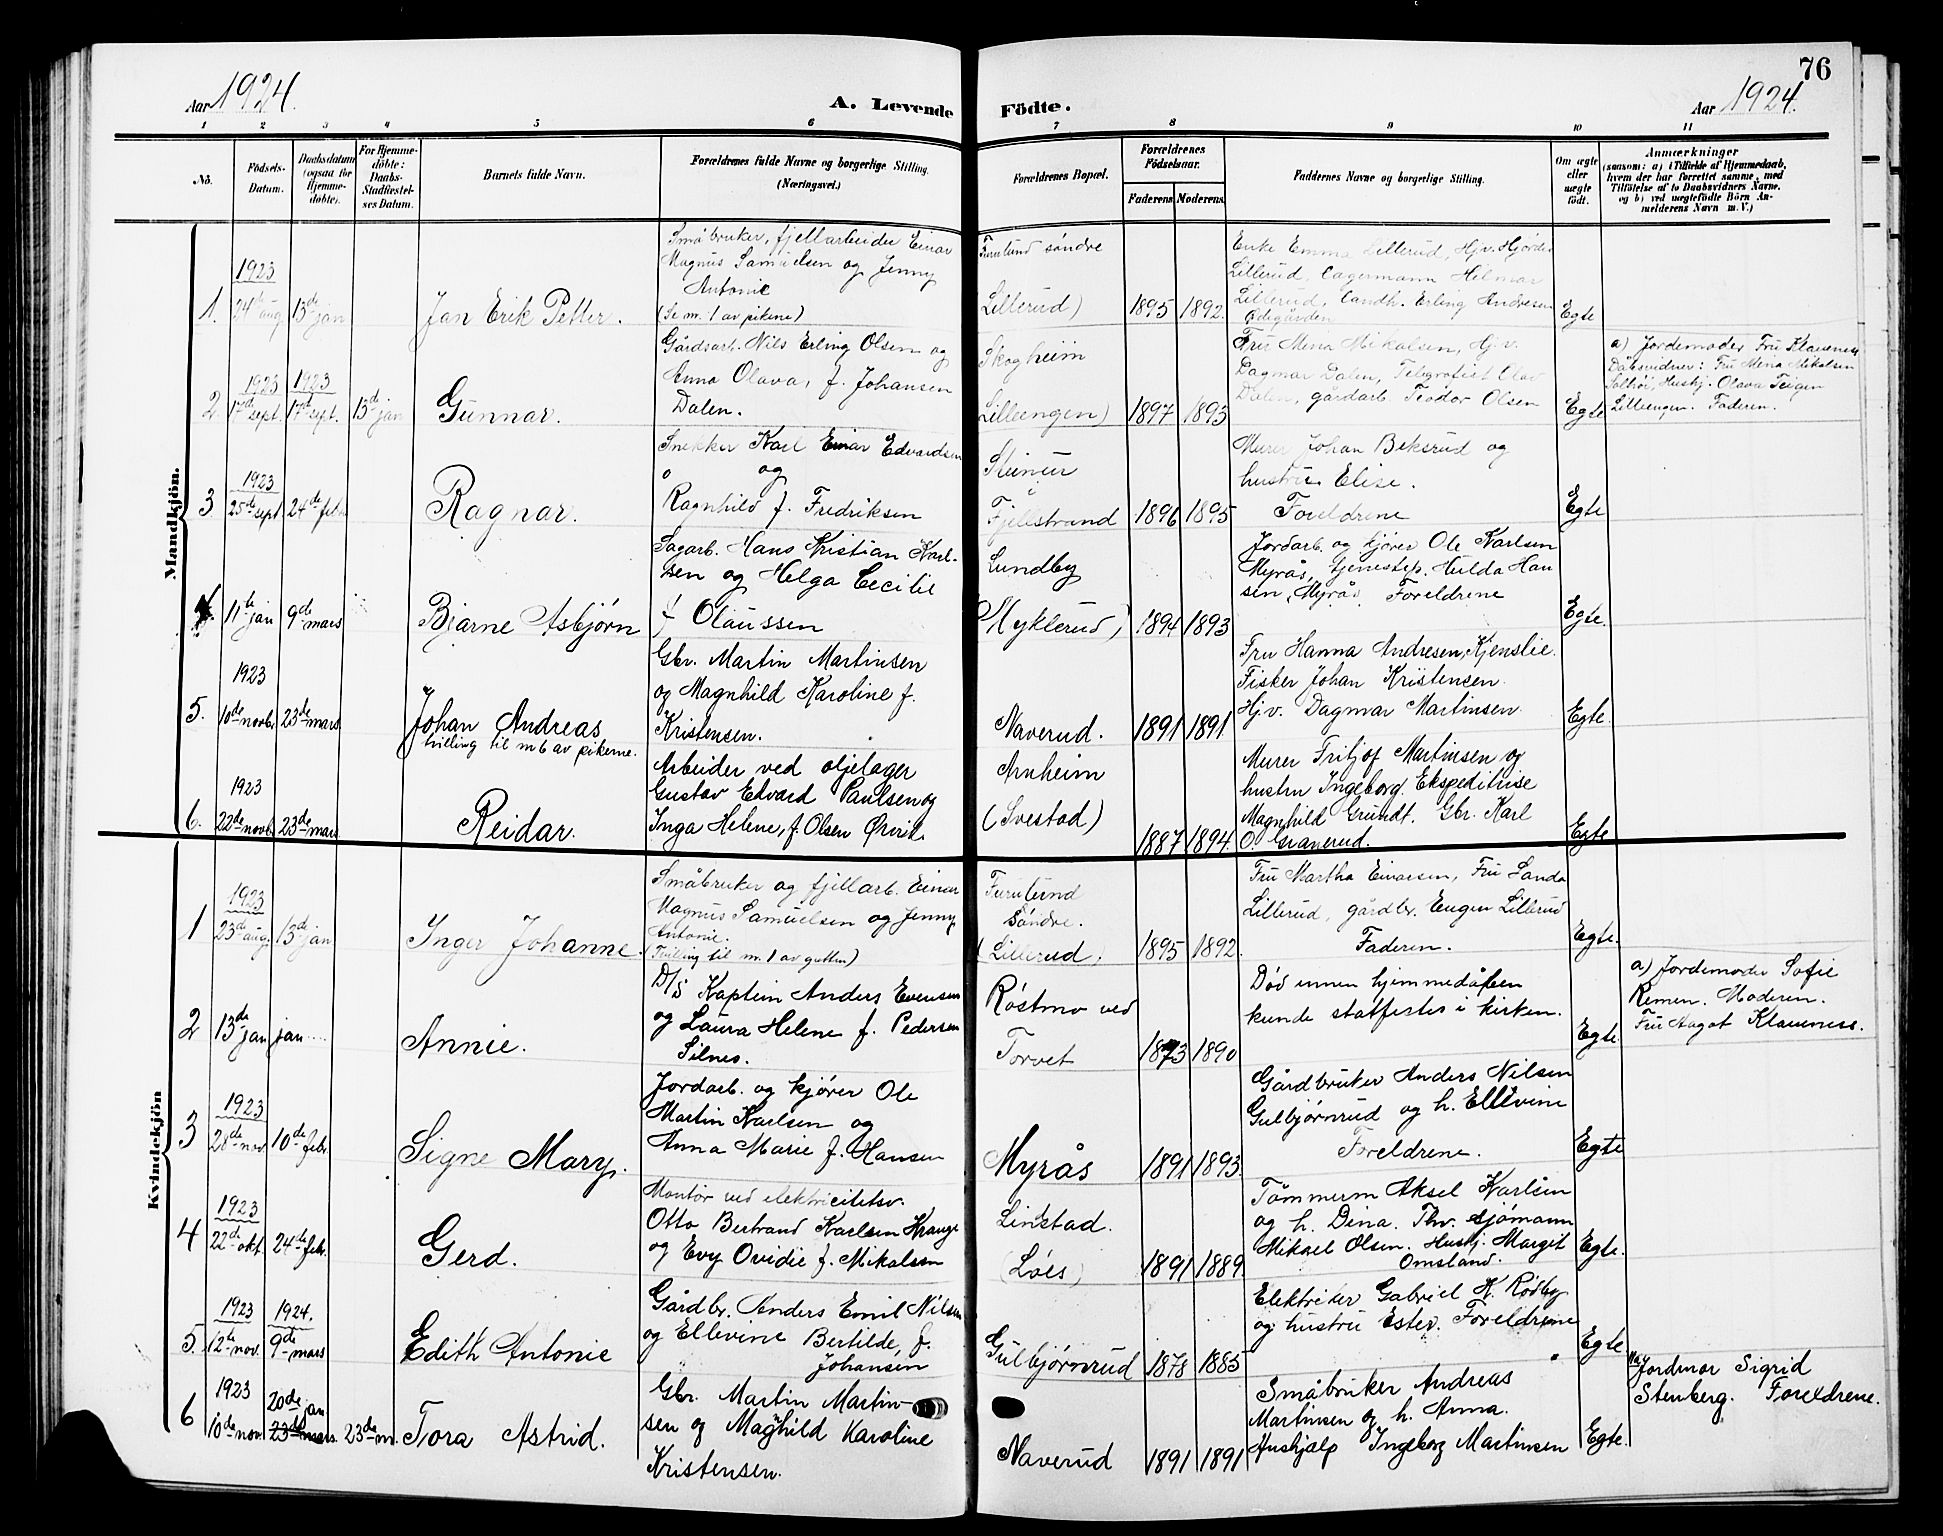 76
Aar 1924.
A. Levende Födte.
Aar 1924.
1 2 3 4 5 6 7 8 9 10 11
No.
Födsels-Datum.
Daabsdatum (ogsaa for Hjemme-döbte).
For Hjemme-döbte: Daabs-Stadfæstel-ses Datum.
Barnets fulde Navn.
Forældrenes fulde Navne og borgerlige Stilling.
(Næringsvei.)
Forældrenes Bopæl.
Forældrenes Födselsaar.
Faderens Moderens
Faddernes Navne og borgerlige Stilling.
Om ægte eller uægte födt.
Anmærkninger
(saasom: a) i Tilfælde af Hjemmedaab,
hvem der har forrettet samme, med
Tilföielse af to Daabsvidners Navne.
og b) ved uægtefödte Börn An-
melderens Navn m. V.)
Mandkjön.
1. 1923 24de aug. 13de jan
Jan Erik Petter.
Småbruker, fjellarbeider Einar
Magnus Samuelsen og Jenny
Antonie
(Se nr. 1 av pikene)
Furulund søndre
(Lillerud)
1895 1892.
Enke Emma Lillerud, Hjv. Hjørdis
Lillerud, Lagermann Helmar
Lillerud, Landh. Erling Andresen
Ødegården
Egte
2. 1923 17de sept. 1923 17de sept. 13de jan
Gunnar.
Gårdsarb. Nils Erling Olsen og
Anna Olava, f. Johansen
Dalen.
Skogheim
Lilleengen)
1897 1893
Fru Mena Mikalsen, Hjv.
Dagmar Dalen, Telegrafist Olav
Dalen, gårdarb. Teodor Olsen
Egte
a) Jordemoder Fru Klaveness
Dåbsvidner: Fru Mena Mikalsen
Solhøi, Hushj. Olava Teigen
Lilleengen. Faderen.
3 1923 25de sept 24de feb.
Ragnar.
Snekker Karl Einar Edvardsen
og
Ragnhild f. Fredriksen
Steinur
Fjellstrand
1896 1895
Murer Johan Beksrud og
hustru Elise.
Foreldrene
Egte
4. 11te jan 9de mars
Bjarne Asbjørn
Sagarb. Hans Kristian Karl-
sen og Helga Cecilie
f Olaussen
Lundby
(Myklerud)
1894 1893
Jordarb. og kjører Ole Karlsen
Myrås, tjenestep. Hulda Han
sen, Myrås Foreldrene
Egte.
5. 1923 10de novb. 23de mars.
Johan Andreas
tvilling til nr 6 av pikerne.
Gbr. Martin Martinsen
og Magnhild Karoline f.
Kristensen.
Naverud.
1891 1891
Fru Hanna Andresen, Kjenslie.
Fisker Johan Kristensen.
Hjv. Dagmar Martinsen.
Egte.
6. 1923 22de novb. 23de mars
Reidar.
Arbeider ved oljelager
Gustav Edvard Paulsen og
Inga Helene, f. Olsen Ørvik
Arnheim
(Svestad)
1887 1894.
Murer Fritjof Martinsen og
hustru Ingeborg. Ekspeditrise
Magnhild Grundt. Gbr. Karl
O. Granerud.
Egte
Kvindekjön
1 1923 23de aug. 13de jan
Inger Johanne.
Småbruker og fjellarb. Einar
Magnus Samuelsen og Jenny
Antonie.
(Tvilling til nr. 1 av gutten)
Furulund
Søndre.
(Lillerud)
1895 1892.
Fru Martha Einarsen, Fru Landa
Lillerud, gårdbr. Eugen Lillerud
Faderen.
Egte.
2 13de jan jan....
Annie.
D/S Kaptein Anders Evensen
og Laura Helene f. Pedersen
Silnes.
Røstmo ved
Torvet
1873 1890
Død innen hjemmedåpen
kunde statfestes i kirken.
Egte.
a) Jordemoder Sofie
Remen. Moderen.
Fru Aagot Klaveness.
3 1923 28de nov. 10de feb.
Signe Mary.
Jordarb. og kjører Ole
Martin Karlsen og
Anna Marie f. Hansen
Myrås
1891 1893.
Gårdbruker Anders Nilsen
Gulbjørnrud og h. Ellevine
Foreldrene.
Egte
4 1923 22de okt. 24de feb.
Gerd.
Montør ved elektricitetsv.
Otto Bertrand Karlsen Krange
og Evy Ovidie f. Mikalsen
Linstad.
(Løes)
1891 1889.
Tømmerm Aksel Karlsen
og h. Dina. Thv. sjømann
Mikael Olsen. Hushj. Margit
Omsland.
Egte.
5. 1923 12te nov. 1924. 9de mars
Edith Antonie
Gårdbr. Anders Emil Nilsen
og Ellevine Bertilde, f.
Johansen
Gulbjørnrud
1878 1885
Elektriker Gabriel K. Rødby
og hustru Ester. Foreldrene
Egte
6 1923 10de nov. 20de jan 23de mars. 23de m.
Tora Astrid.
Gbr. Martin Martin-
sen og Magnhild Karoline
Kristensen.
Naverud
1891 1891
Småbruker Andreas
Martinsen og h. Anna.
Hushjælp Ingeborg Martinsen
Egte.
a) Jordmor Sigrid
Stenberg. Foreldrene.